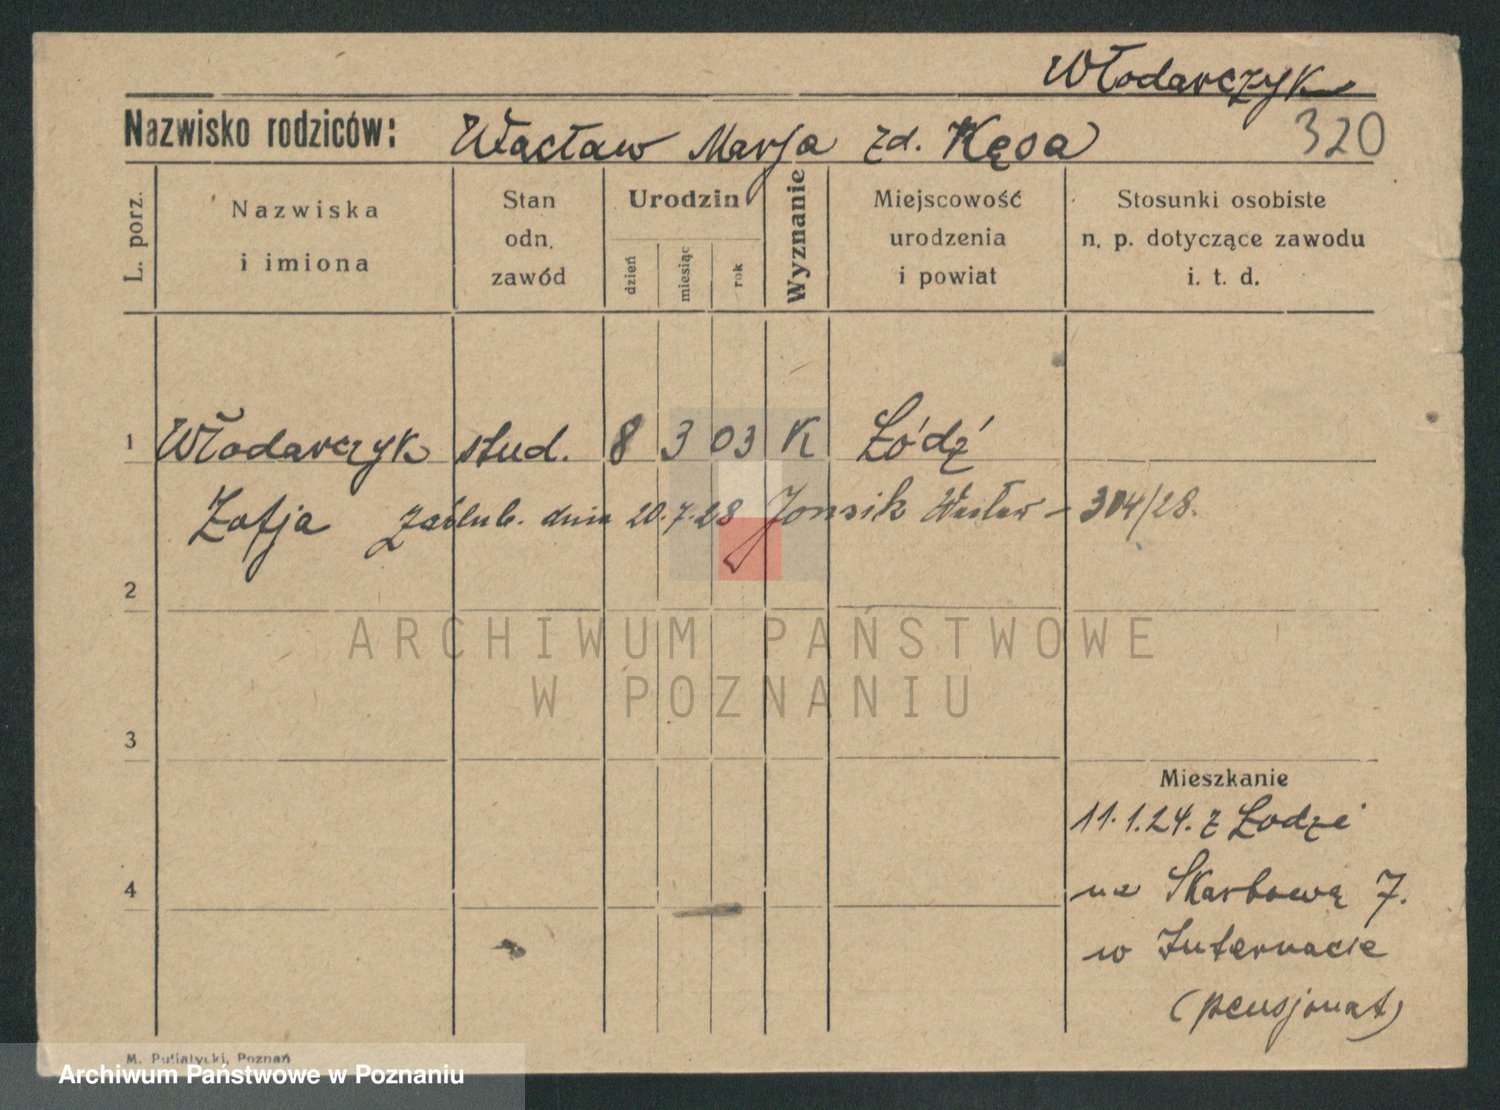 Włodarczyk
Nazwisko rodziców: Wacław Marja zd. Kęsa
320
L. porz.
Nazwiska
i imiona
Stan
odn.
zawód
Urodzin
dzień
miesiąc
rok
Wyznanie
Miejscowość
urodzenia
i powiat
Stosunki osobiste
n. p. dotyczące zawodu
i. t. d.
1 Włodarczyk stud. 8 3 03 K Łódź
Zofja zaślub. dnia 20.7.28 Jonsik Wacław - 304/28.
2
ARCHIWUM PAŃSTWOWE
W POZNANIU
3
Mieszkanie
11.1.24. z Łodzi
4
na Skarbową 7.
w Internacie
(pensjonat)
M. Putiatycki, Poznań
Archiwum Państwowe w Poznaniu